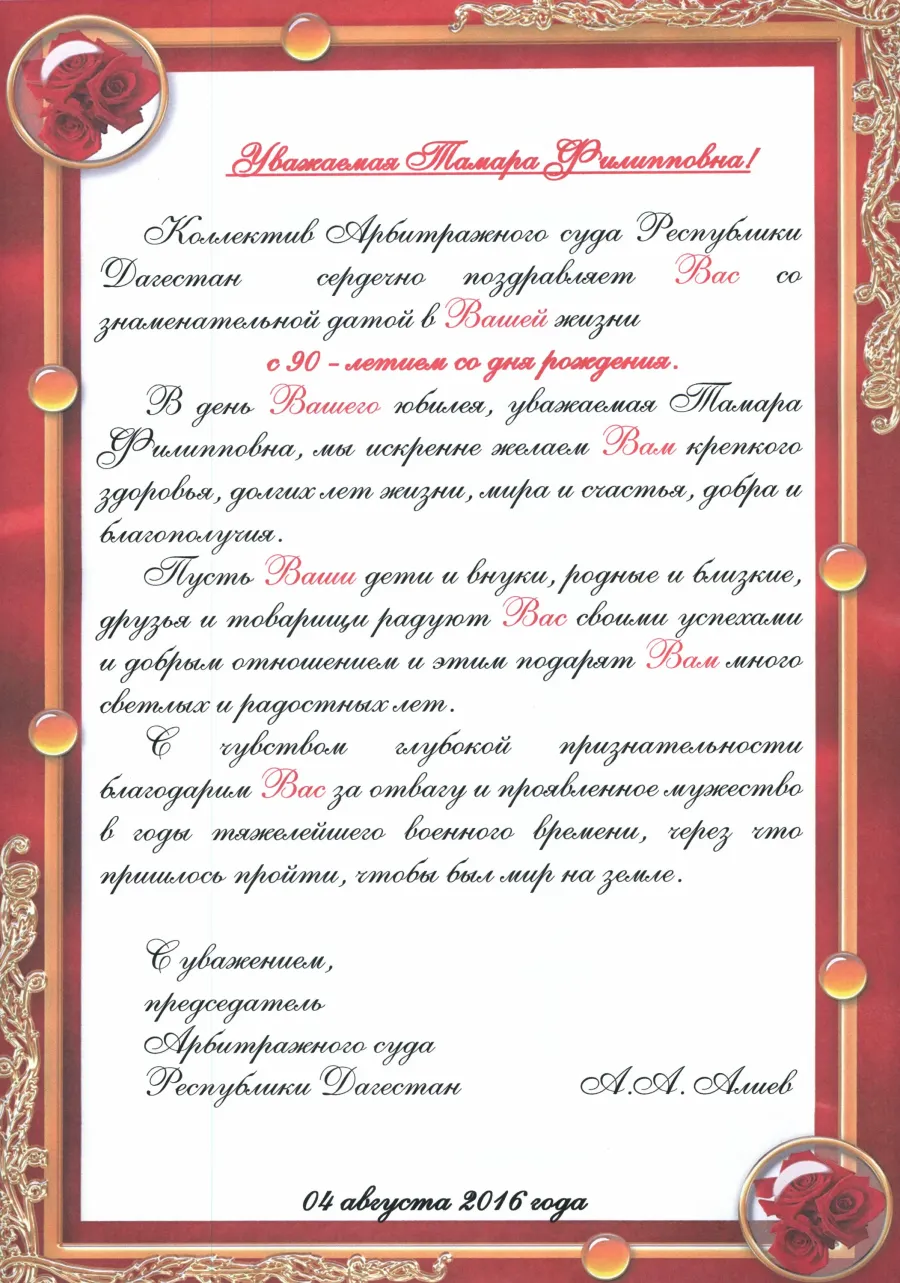 Уважаемая Тамара Филипповна!
Коллектив Арбитражного суда Республики
Дагестан сердечно поздравляет Вас со
знаменательной датой в Вашей жизни
с 90 – летием со дня рождения.
В день Вашего юбилея, уважаемая Тамара
Филипповна, мы искренне желаем Вам крепкого
здоровья, долгих лет жизни, мира и счастья, добра и
благополучия.
Пусть Ваши дети и внуки, родные и близкие,
друзья и товарищи радуют Вас своими успехами
и добрым отношением и этим подарят Вам много
светлых и радостных лет.
С чувством глубокой признательности
благодарим Вас за отвагу и проявленное мужество
в годы тяжелейшего военного времени, через что
пришлось пройти, чтобы был мир на земле.
С уважением,
председатель
Арбитражного суда
Республики Дагестан А.А. Алиев
04 августа 2016 года